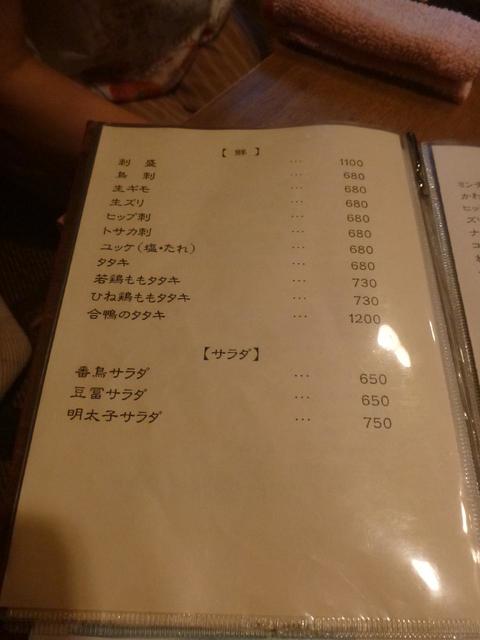 【 鮮 】
刺 盛 … 1100
鳥 刺 … 680
生ギモ … 680
生ズリ … 680
ヒップ刺 … 680
トサカ刺 … 680
ユッケ(塩・たれ) … 680
タタキ … 680
若鶏ももタタキ … 730
ひね鶏ももタタキ … 730
合鴨のタタキ … 1200
【サラダ】
番鳥サラダ … 650
豆冨サラダ … 650
明太子サラダ … 750
ミンチ
かわ
ヒッ
ズリ
ナ